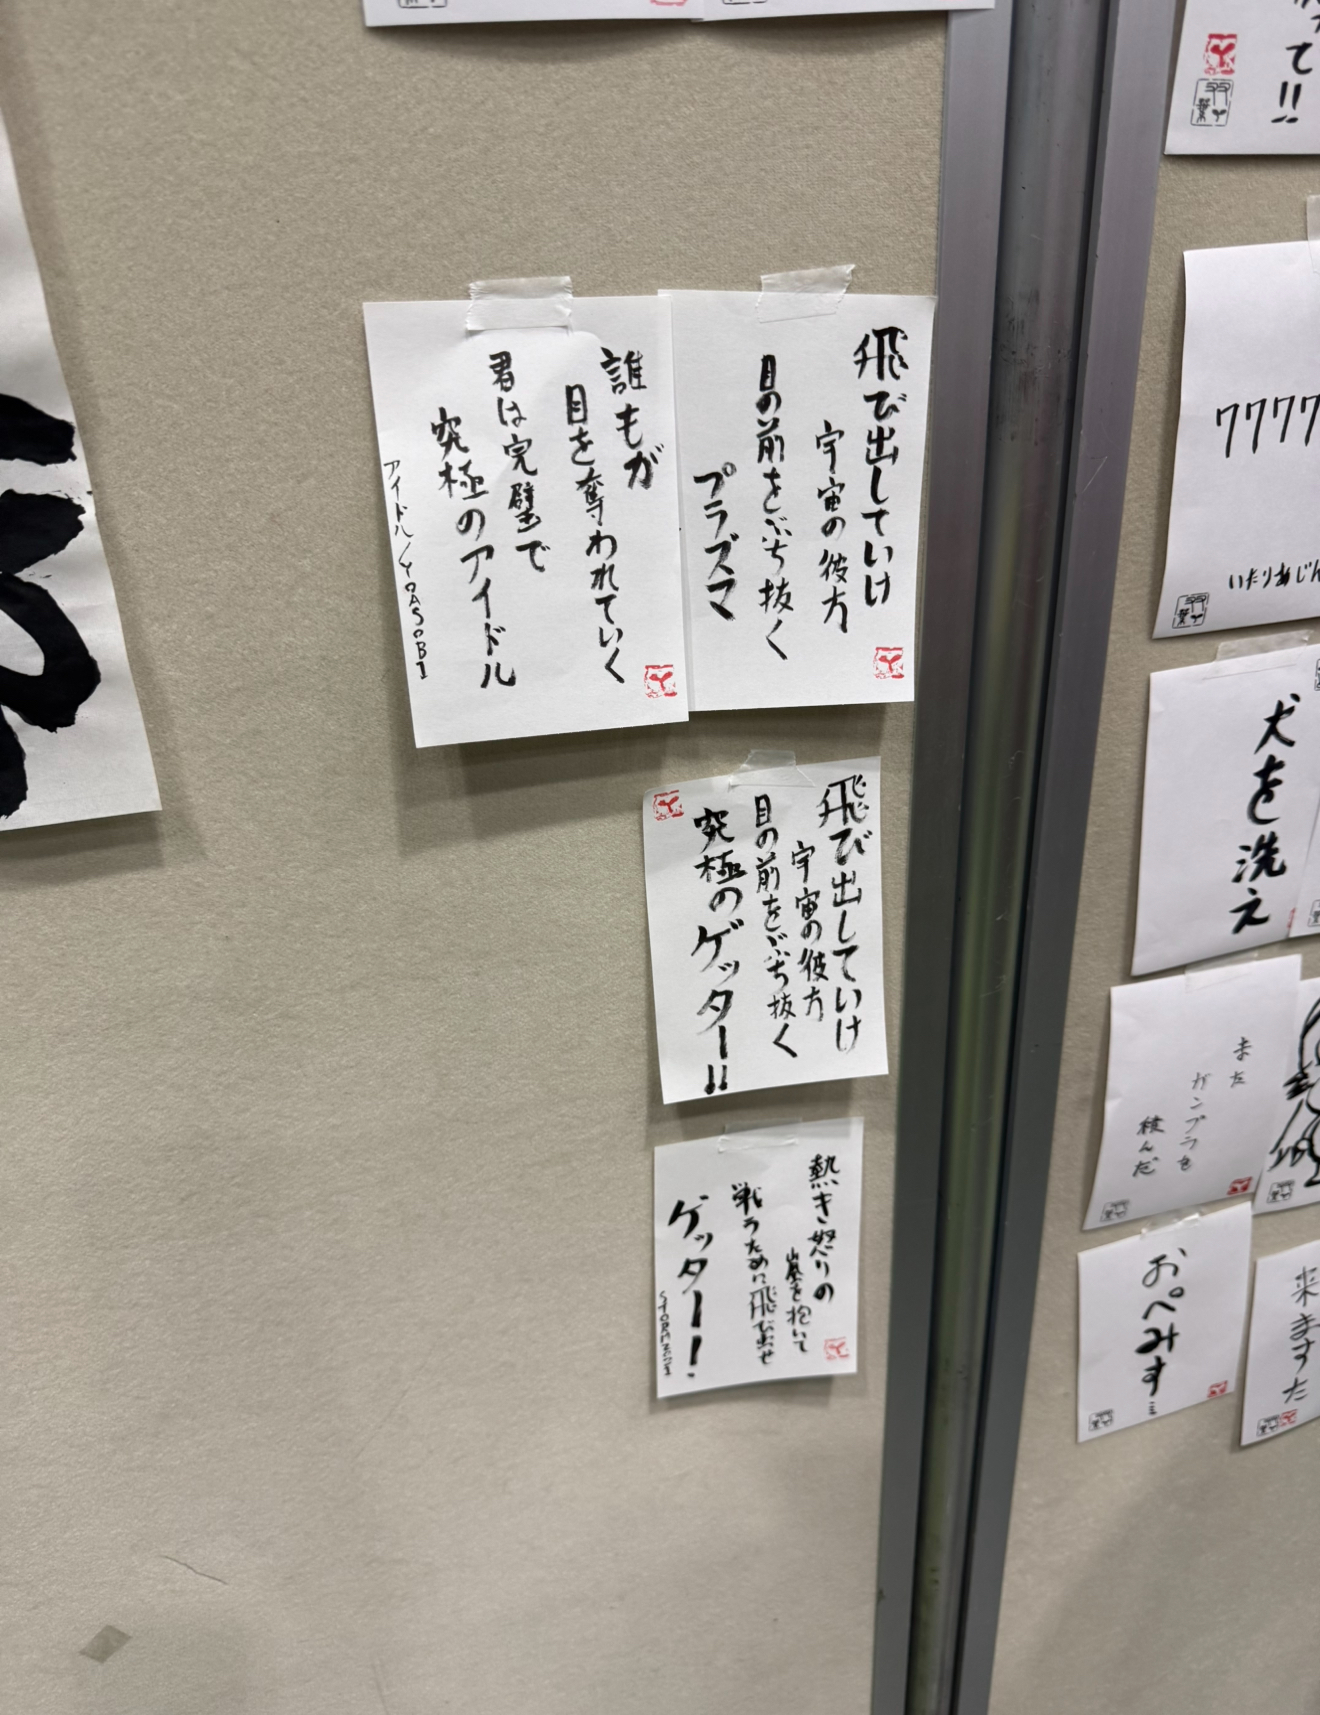 飛び出していけ
宇宙の彼方
目の前をぶち抜く
プラズマ
誰もが
目を奪われていく
君は完璧で
究極のアイドル
アイドル/YOASOBI
飛び出していけ
宇宙の彼方
目の前をぶち抜く
究極のゲッター!!
熱き怒りの
嵐を抱いて
戦うために飛び出せ
ゲッター!
て!!
双葉
7777
いたりあじん
双葉
犬を
洗え
まだ
ガンプラを
積んだ
おぺみす…
来ますた